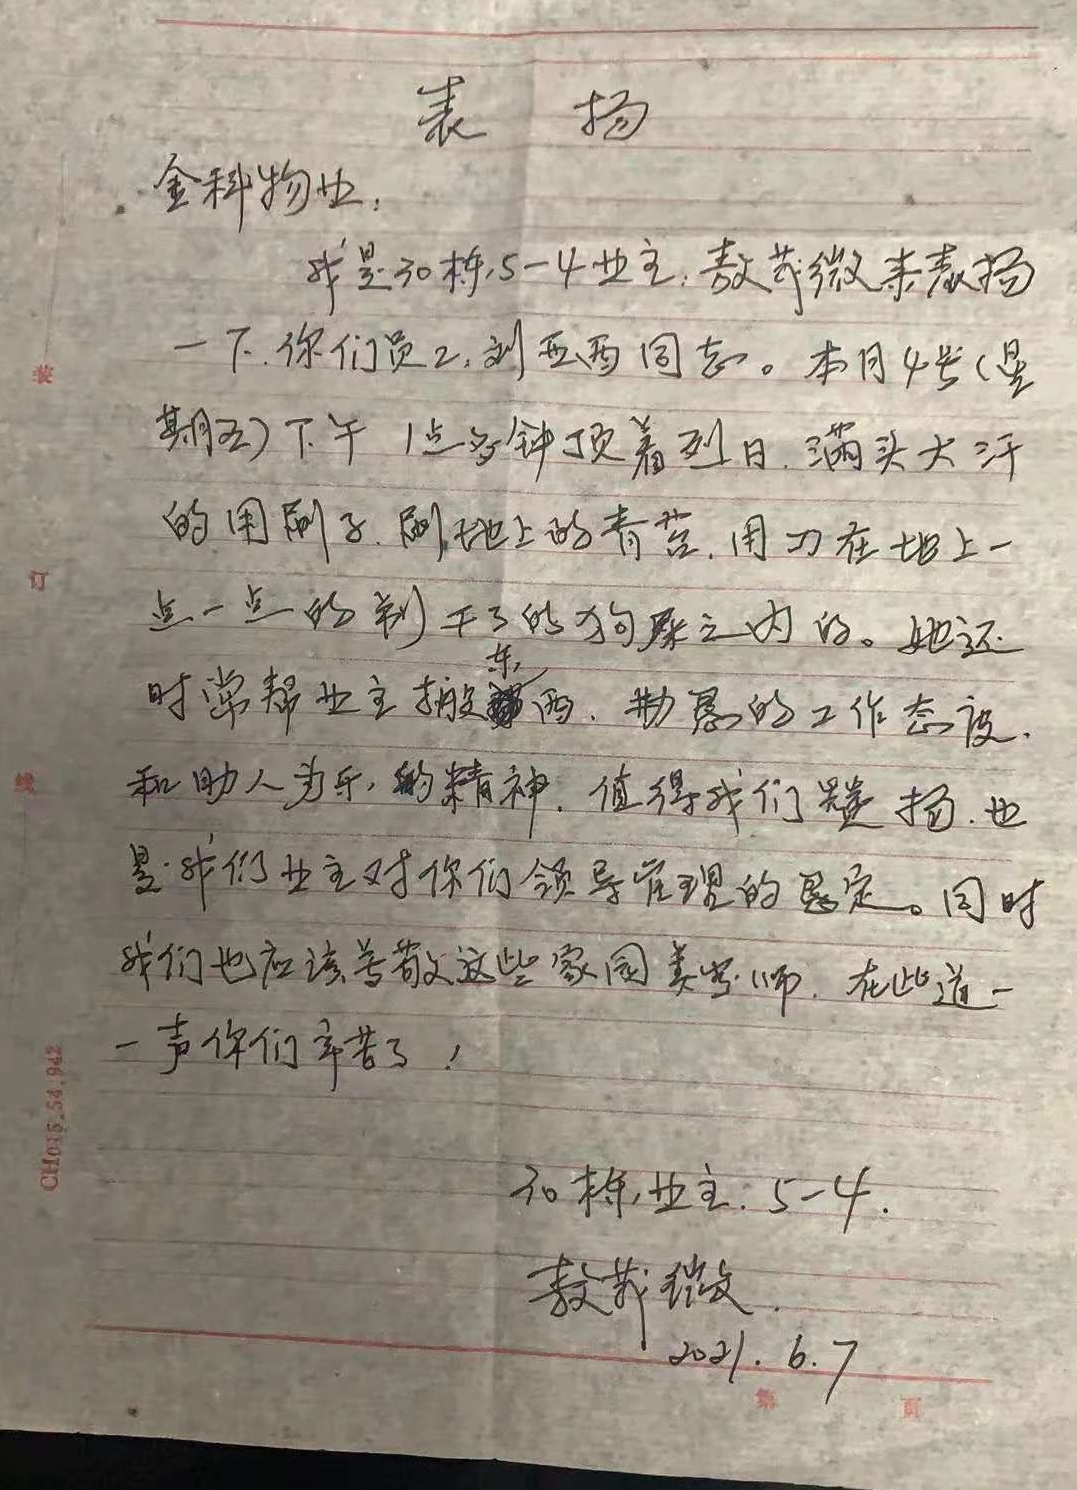 表 扬
金科物业:
我是30栋,5-4业主,敖茂微来表扬
一下.你们员工,刘亚西同志。本月4号(星
期五)下午1点多钟顶着烈日.满头大汗
的用刷子.刷地上的青苔.用刀在地上一
点一点的剃干了的狗屎之内的。她还
时常帮业主搬东西.勤恳的工作态度.
和助人为乐,的精神.值得我们 扬.也
是我们业主对你们领导管理的 定。同时
我们也应该尊敬这些家园美容师.在此道一
一声你们辛苦了!
30栋,业主.5-4.
敖茂微.
2021.6.7
装
订
线
CH015.54.942
第 页